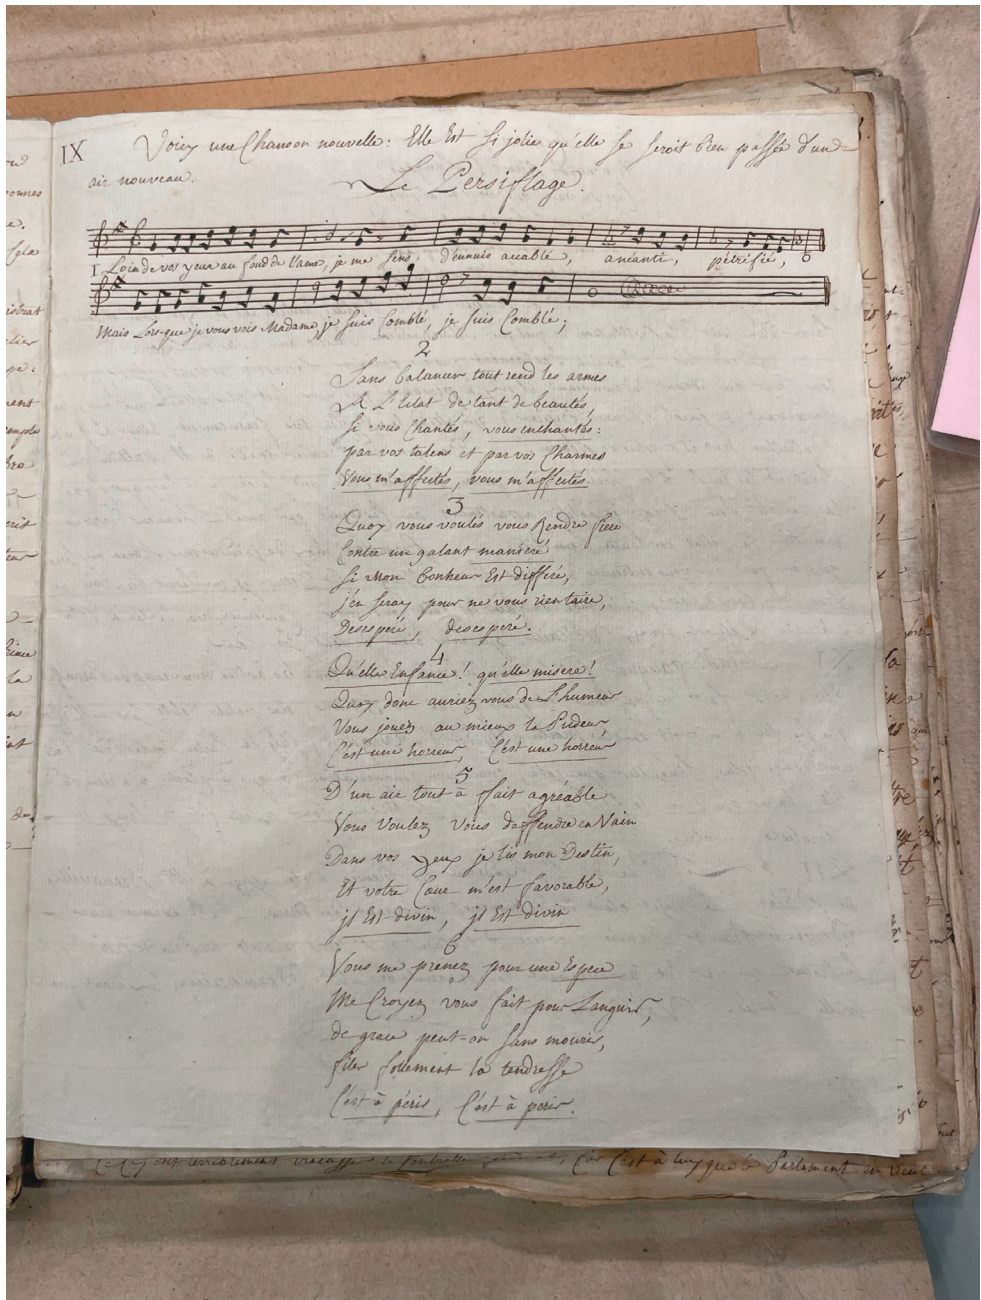 IX Voicy une Chanson nouvelle: Elle Est si jolie qu'elle se seroit bien passée d'un
air nouveau.
Le Persiflage.
1 Loin de vos yeux au fond de l'ame, je me sens, d'ennuis accablé, anéanti, pétrifié,
Mais Lorsque je vous vois Madame, je suis Comblé, je suis Comblé;
2
Sans balancer tout rend les armes
A L'Eclat de tant de beautés,
Si vous Chantés, vous enchantés:
par vos talens et par vos Charmes
Vous m'affectés, vous m'affectés
3
Quoy vous voulés vous Rendre fiere
Contre un galant manieré
Si Mon bonheur Est differé,
j'en seray pour ne vous rien taire,
Desesperé, desesperé.
4
Qu'elle Enfance! qu'elle misere!
Quoy donc auriez vous de L'humeur
Vous jouez au mieux la Pudeur,
C'est une horreur, C'est une horreur
5
D'un air tout à fait agréable
Vous Voulez vous deffendre en Vain
Dans vos yeux je lis mon Destin,
Et votre Cœur m'est favorable,
jl Est divin, jl Est divin
6
Vous me prenez pour une Espece
Me Croyez vous fait pour Languir,
de grace peut-on sans mourir,
filer follement la tendresse
C'est à périr, C'est à perir.
terriblement C'est à luy que le Parlement en veut